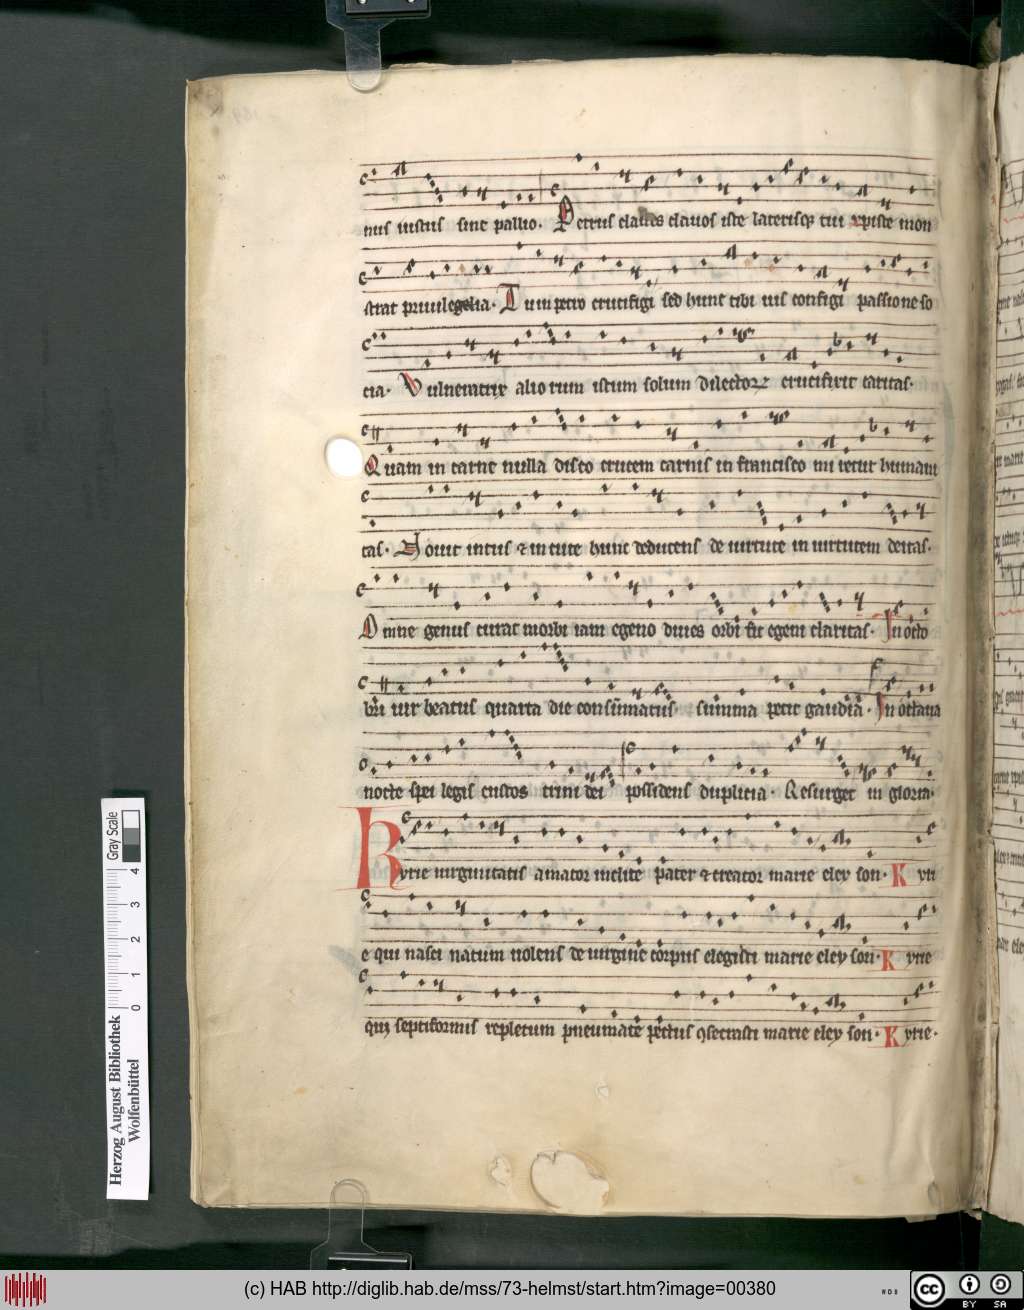 nus iustus sine pallio. Petrus claues clauos iste laterisque tui xpiste mon
strat priuilegia. Tum petro crucifigi sed hunc tibi uis configi passione so
cia. Vulneratrix aliorum istum solum dilector crucifixit caritas.
Quam in carne nulla disco crucem carnis in francisco mi humani
tas. Mouit intus & in cute hunc deducens de uirtute in uirtutem deitas.
Omne genus curat morbi iam egeno diues orbi fit egeni claritas. In octo
bri uir beatus quarta die consumatus summa petit gaudia. In octaua
nocte spei legis custos trini dei possidens duplicia. Resurget in gloria.
Kyrie uirginitatis amator inclite pater & creator marie eley son. K yri
e qui nasci natum uolens de uirgine corpus elegisti marie eley son. K yrie
qui septiformis repletum pneumate pectus consecrasti marie eley son. K yrie.
Gray Scale
0 1 2 3 4
Herzog August Bibliothek
Wolfenbüttel
(c) HAB http://diglib.hab.de/mss/73-helmst/start.htm?image=00380
cc
BY SA